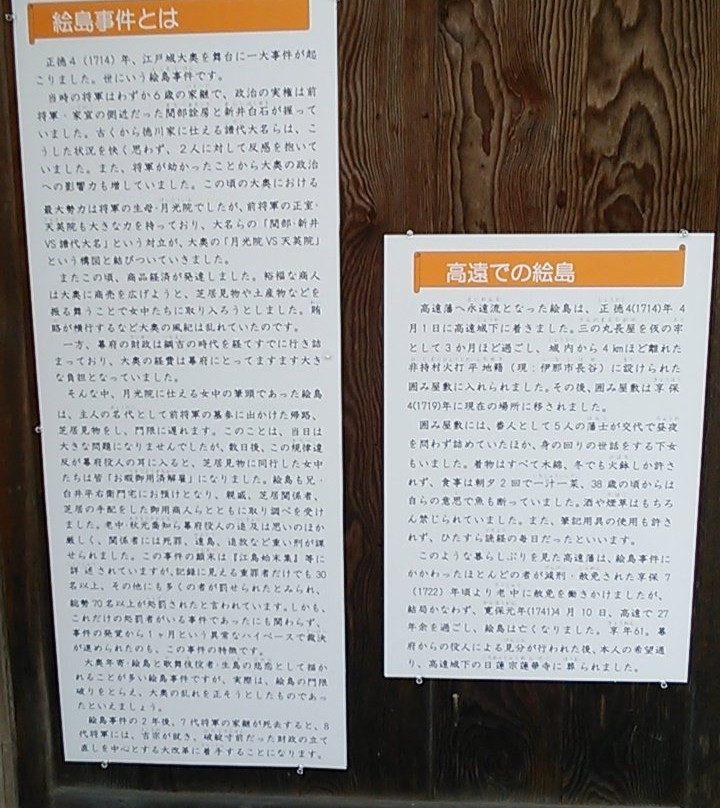 絵島事件とは
正徳4（1714）年、江戸城大奥を舞台に一大事件が起
こりました。世にいう絵島事件です。
当時の将軍はわずか6歳の家継で、政治の実権は前
将軍・家宣の側近だった間部詮房と新井白石が握って
いました。古くから徳川家に仕える譜代大名らは、こ
うした状況を快く思わず、2人に対して反感を抱いて
いました。また、将軍が幼かったことから大奥の政治
への影響力も増していました。この頃の大奥における
最大勢力は将軍の生母・月光院でしたが、前将軍の正室・
天英院も大きな力を持っており、大名らの「間部・新井
VS譜代大名」という対立が、大奥の「月光院VS天英院」
という構図と結びついていきました。
またこの頃、商品経済が発達しました。裕福な商人
は大奥に商売を広げようと、芝居見物や土産物などを
振る舞うことで女中たちに取り入ろうとしました。賄
賂が横行するなど大奥の風紀は乱れていたのです。
一方、幕府の財政は綱吉の時代を経てすでに行き詰
まっており、大奥の経費は幕府にとってますます大き
な負担となっていました。
そんな中、月光院に仕える女中の筆頭であった絵島
は、主人の名代として前将軍の墓参に出かけた帰路、
芝居見物をし、門限に遅れます。このことは、当日は
大きな問題になりませんでしたが、数日後、この規律違
反が幕府役人の耳に入ると、芝居見物に同行した女中
たちは皆「お暇御用済解雇」になりました。絵島も兄・
白井平右衛門宅にお預けとなり、親戚、芝居関係者、
芝居の手配をした御用商人らとともに取り調べを受け
ました。老中・秋元喬知ら幕府役人の追及は思いのほか
厳しく、関係者には死罪、遠島、追放など重い刑が課
せられました。この事件の顛末は『江島始末集』等に
詳述されていますが、記録に見える重罪者だけでも30
名以上、その他にも多くの者が罰せられたとみられ、
総勢70名以上が処罰されたと言われています。しかも、
これだけの処罰者がいる事件であったにも関わらず、
事件の発覚から1ヶ月という異常なハイペースで裁決
が進められたのも、この事件の特徴です。
大奥年寄・絵島と歌舞伎役者・生島の悲恋として描か
れることが多い絵島事件ですが、実際は、絵島の門限
破りをとらえ、大奥の乱れを正そうとしたものであっ
たといえましょう。
絵島事件の2年後、7代将軍の家継が死去すると、8
代将軍には、吉宗が就き、破綻寸前だった財政の立て
直しを中心とする大改革に着手することになります。
高遠での絵島
高遠藩へ永遠流となった絵島は、正徳4(1714)年4
月1日に高遠城下に着きました。三の丸長屋を仮の牢
として3か月ほど過ごし、城内から4kmほど離れた
非持村火打平地籍（現：伊那市長谷）に設けられた
囲み屋敷に入れられました。その後、囲み屋敷は享保
4(1719)年に現在の場所に移されました。
囲み屋敷には、番人として5人の藩士が交代で昼夜
を問わず詰めていたほか、身の回りの世話をする下女
もいました。着物はすべて木綿、冬でも火鉢しか許さ
れず、食事は朝夕2回で一汁一菜、38歳の頃からは
自らの意思で魚も断っていました。酒や煙草はもちろ
ん禁じられていました。また、筆記用具の使用も許さ
れず、ひたすら読経の毎日だったといいます。
このような暮らしぶりを見た高遠藩は、絵島事件に
かかわったほとんどの者が減刑・赦免された享保7
（1722）年頃より老中に赦免を働きかけましたが、
結局かなわず、寛保元年(1741)4月10日、高遠で27
年余を過ごし、絵島は亡くなりました。享年61。幕
府からの役人による見分が行われた後、本人の希望通
り、高遠城下の日蓮宗蓮華寺に葬られました。